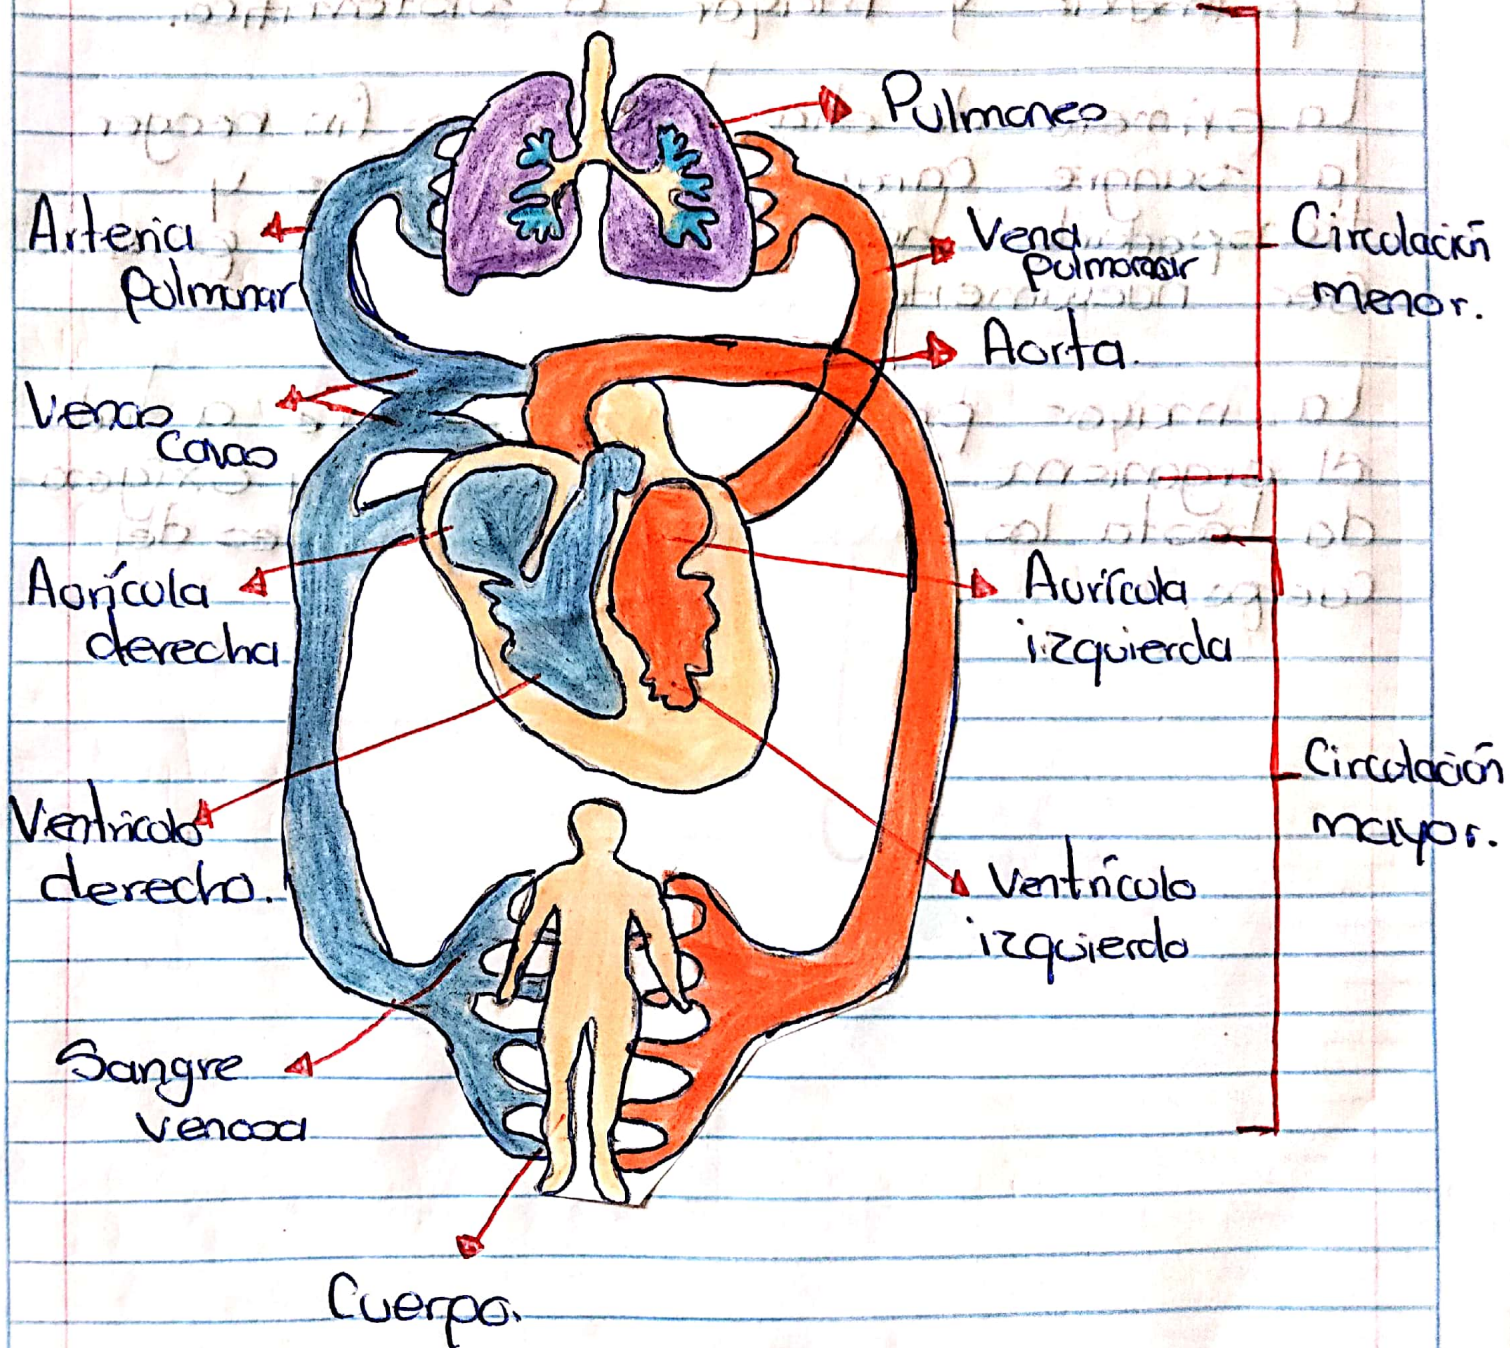 Pulmones
Arteria
pulmonar
Vena
pulmonar
Circulación
menor.
Aorta.
Venas
Cavas
Aurícula
derecha
Aurícula
izquierda
Circulación
mayor.
Ventriculo
derecho.
Ventrículo
izquierdo
Sangre
venosa
Cuerpo.